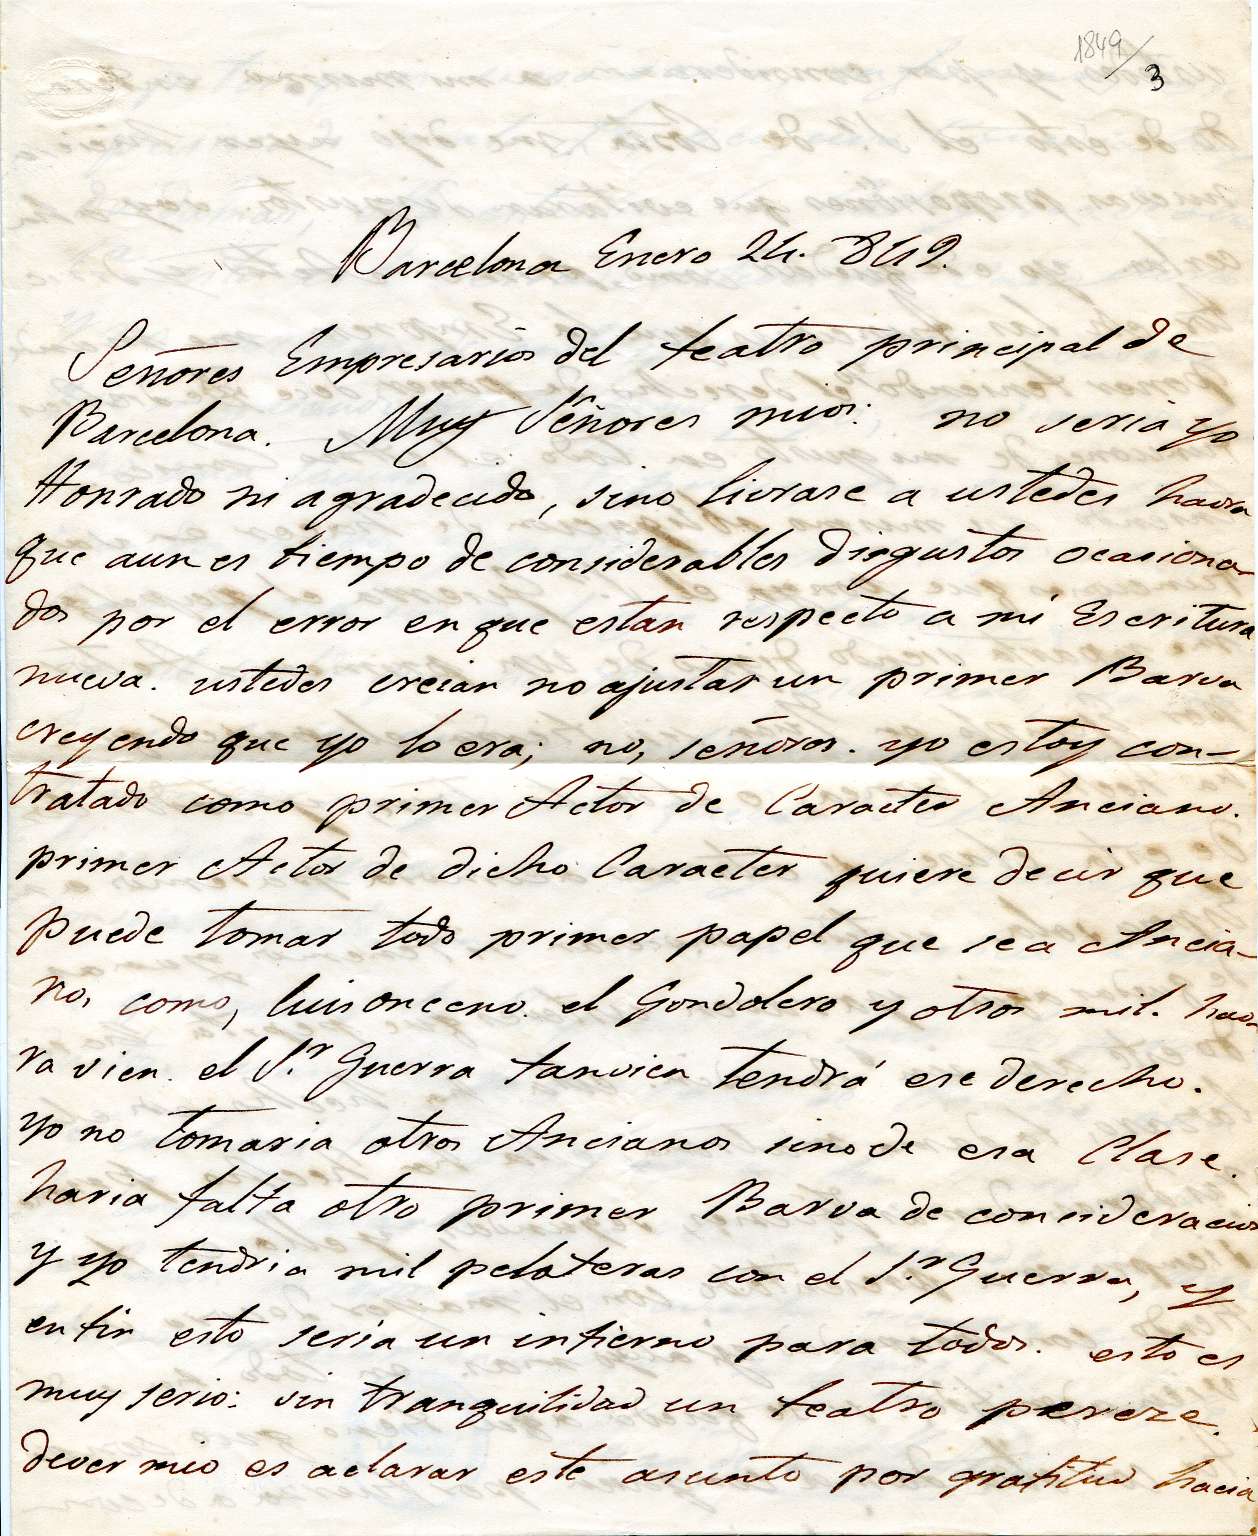 1849/3
Barcelona Enero 24. 849.
Señores Empresarios del teatro principal de
Barcelona. Muy Señores mios: no seria yo
Honrado ni agradecido, sino livrase a ustedes haora
que aun es tiempo de considerables disgustos ocasiona-
dos por el error en que estan respecto a mi Escritura
nueva. ustedes creian no ajustar un primer Barva
creyendo que yo lo era; no, señores. yo estoy con-
tratado como primer Actor de Caracter Anciano.
primer Actor de dicho Caracter quiere decir que
puede tomar todo primer papel que sea Ancia-
no, como, luis onceno. el Gondolero y otros mil. hao-
ra vien. el S.r Guerra tanvien tendrá ese derecho.
yo no tomaria otros Ancianos sino de esa Clase.
haria falta otro primer Barva de consideracion
y yo tendria mil peloteras con el S.r Guerra, y
enfin esto seria un infierno para todos. esto es
muy serio: sin tranquilidad un teatro pereze.
dever mio es aclarar este asunto por gratitud hacia